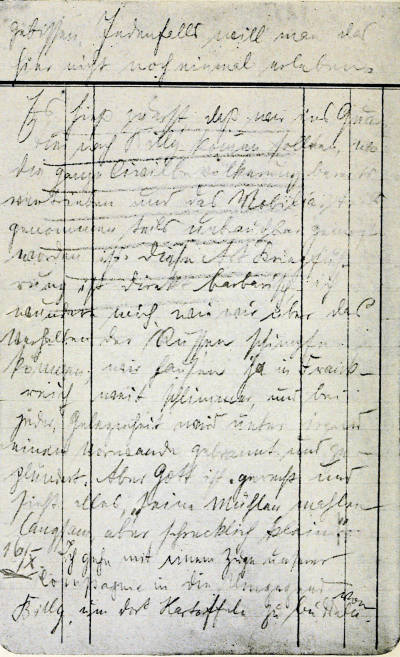 gebissen. Jedenfalls will man das
hier nicht noch einmal erleben.
Es hieß zuerst daß wir ins Quar-
tier nach Billy kommen sollten, wo
die ganze Civilbevölkerung bereits
vertrieben und das Mobiliar teils
genommen, teils unbrauchbar gemacht
worden ist. Diese Art Kriegfüh-
rung ist direkt barbarisch. ich
wundere mich, wie wir über das
Verhalten der Russen schimpfen
können, wir hausen ja in Frank-
reich weit schlimmer, und bei
jeder Gelegenheit wird unter irgend
einem Vorwande gebrannt und ge-
plündert. Aber Gott ist gerecht und
sieht alles, "Seine Mühlen mahlen
langsam, aber schrecklich klein".
Ich gehe mit einem Zuge unserer
Compagnie in die Umgegend von
Billy, um dort Kartoffeln zu